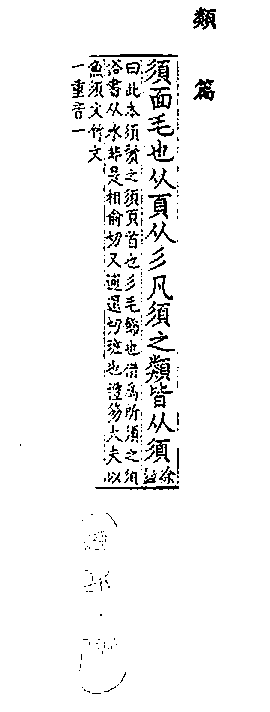 類篇
須面毛也从頁从彡凡須之類皆从須徐鉉
曰此本須鬢之須頁首也彡毛飾也借為所須之須
俗書从水非是相俞切又逋還切班也禮笏大夫以
魚須文竹文
一重音一